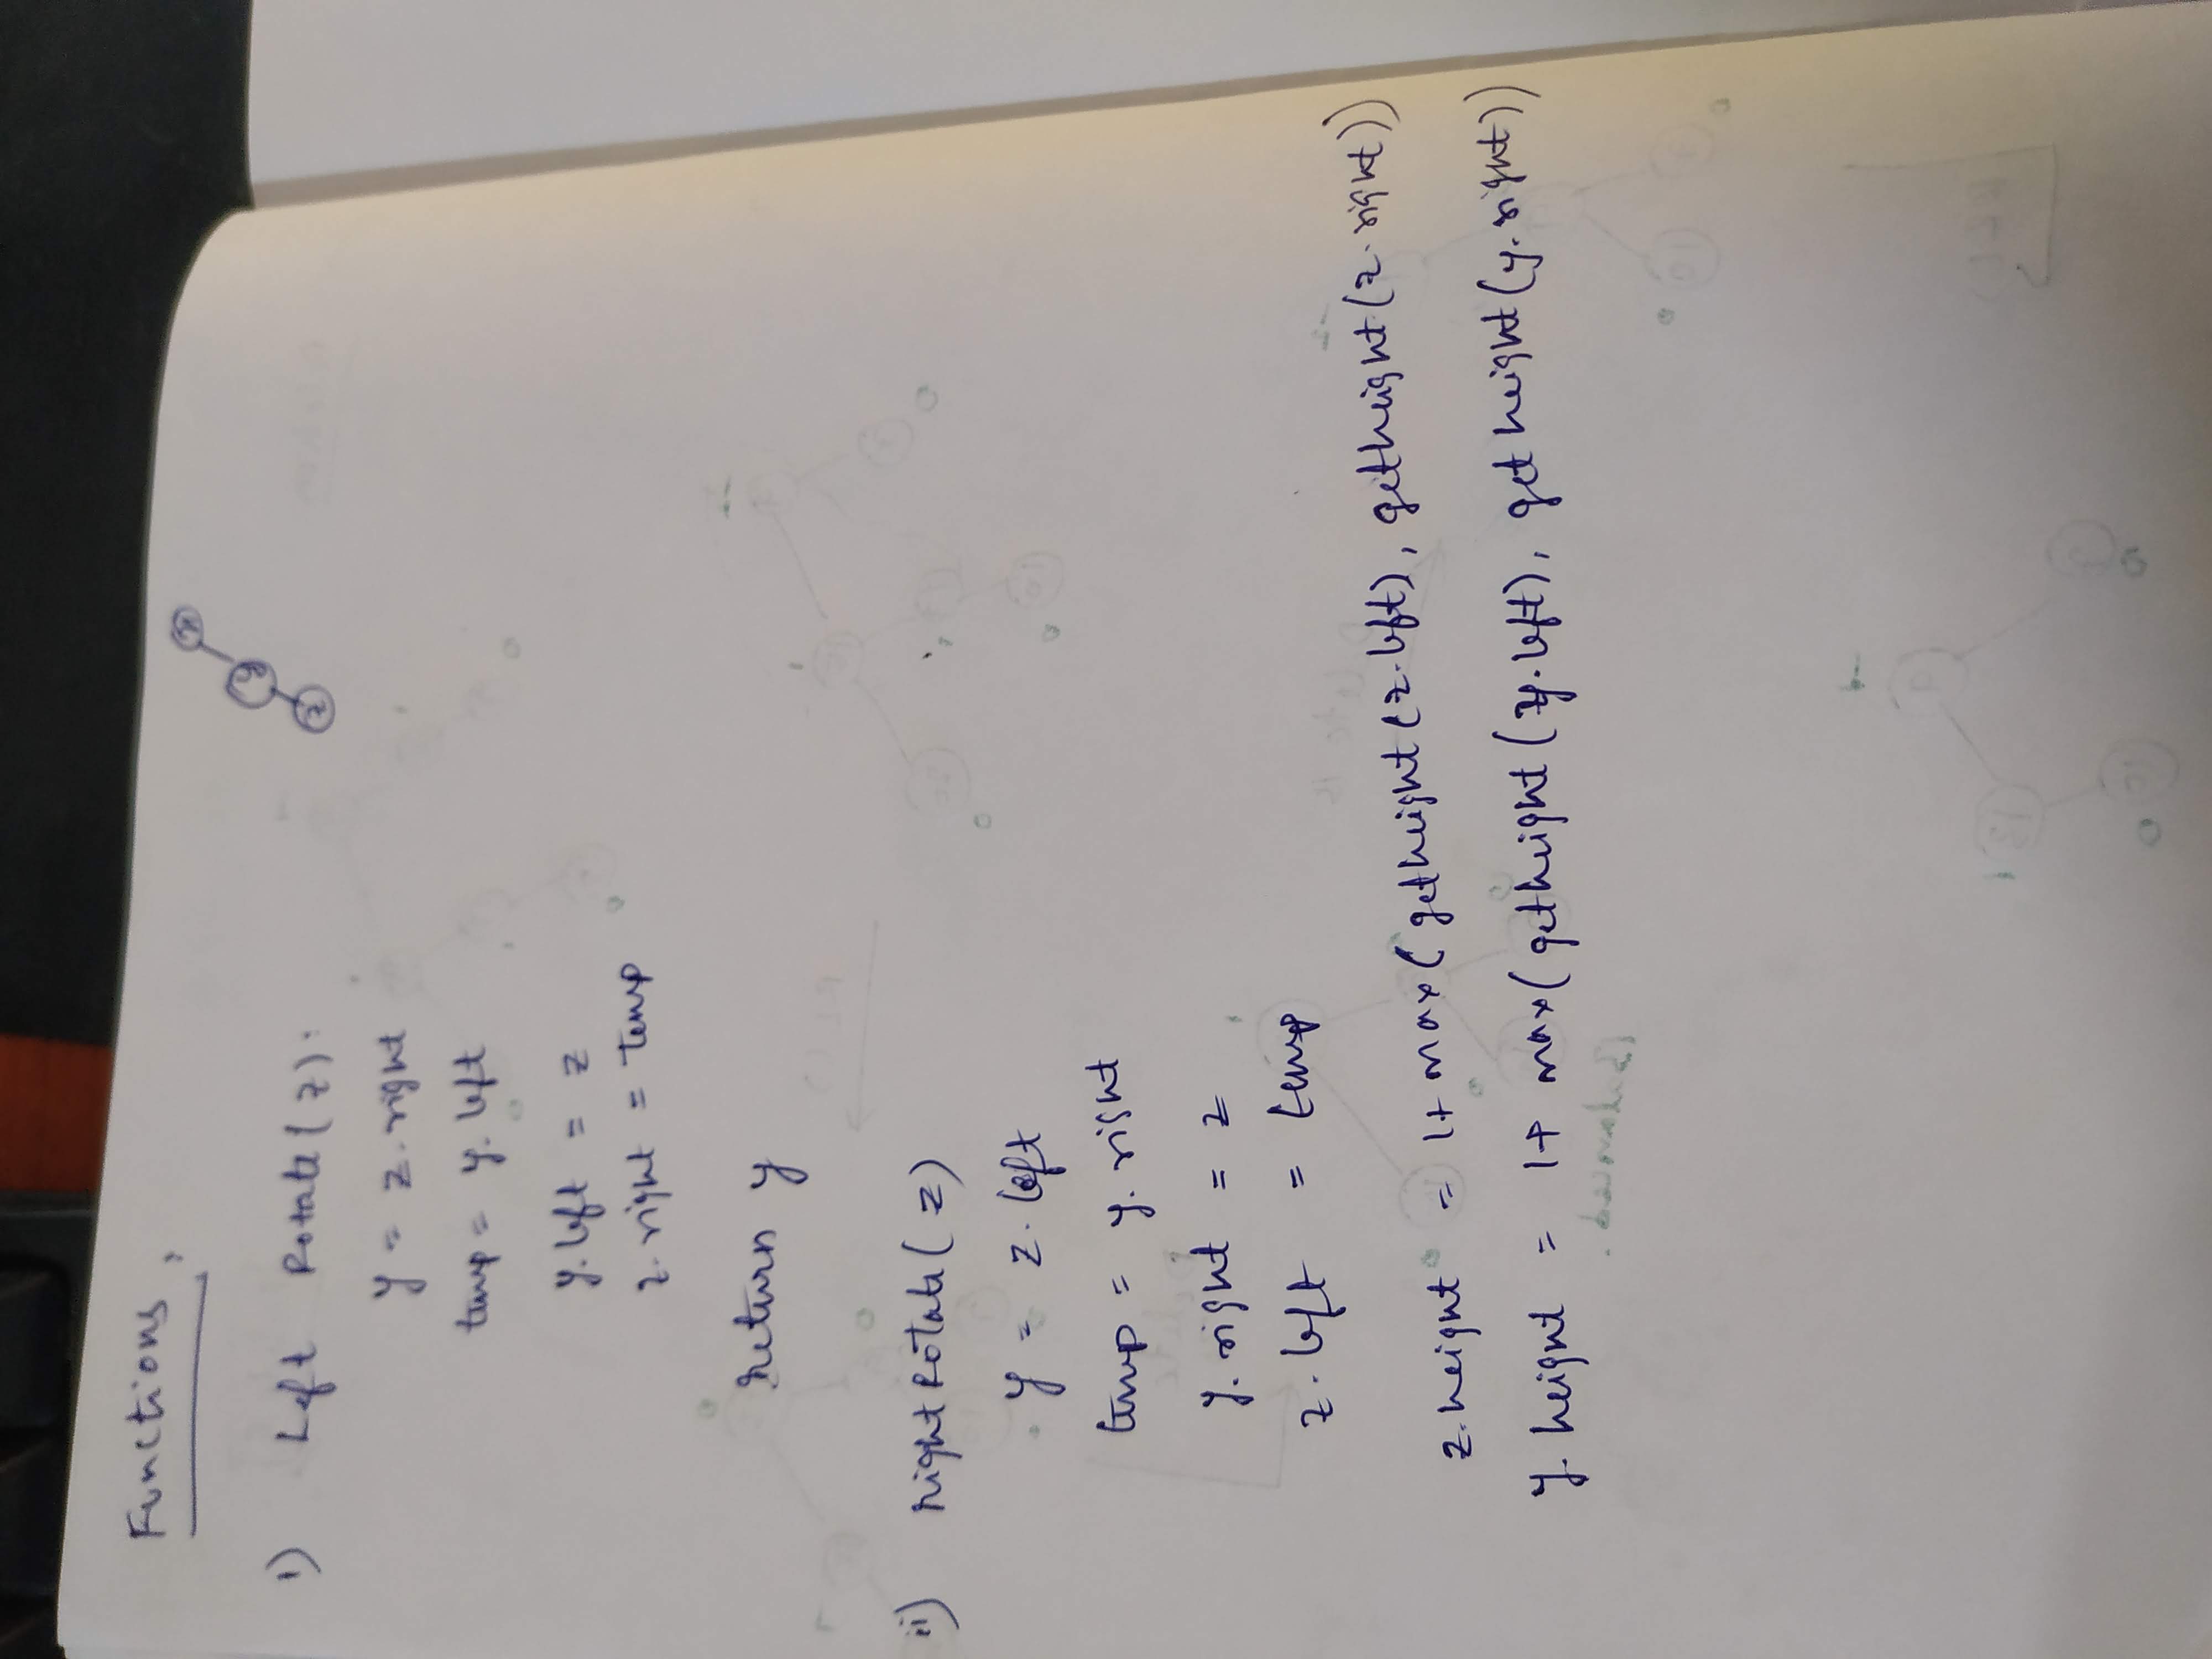 Functions,
x
y
z
i) Left Rotate(z):
y = z.right
temp = y.left
y.left = z
z.right = temp
return y
ii) rightRotate(z)
y = z.left
temp = y.right
y.right = z
z.left = temp
z.height = 1+ max(getheight(z.left), getheight(z.right))
y.height = 1+ max(getheight(y.left), getheight(y.right))
Balanced.